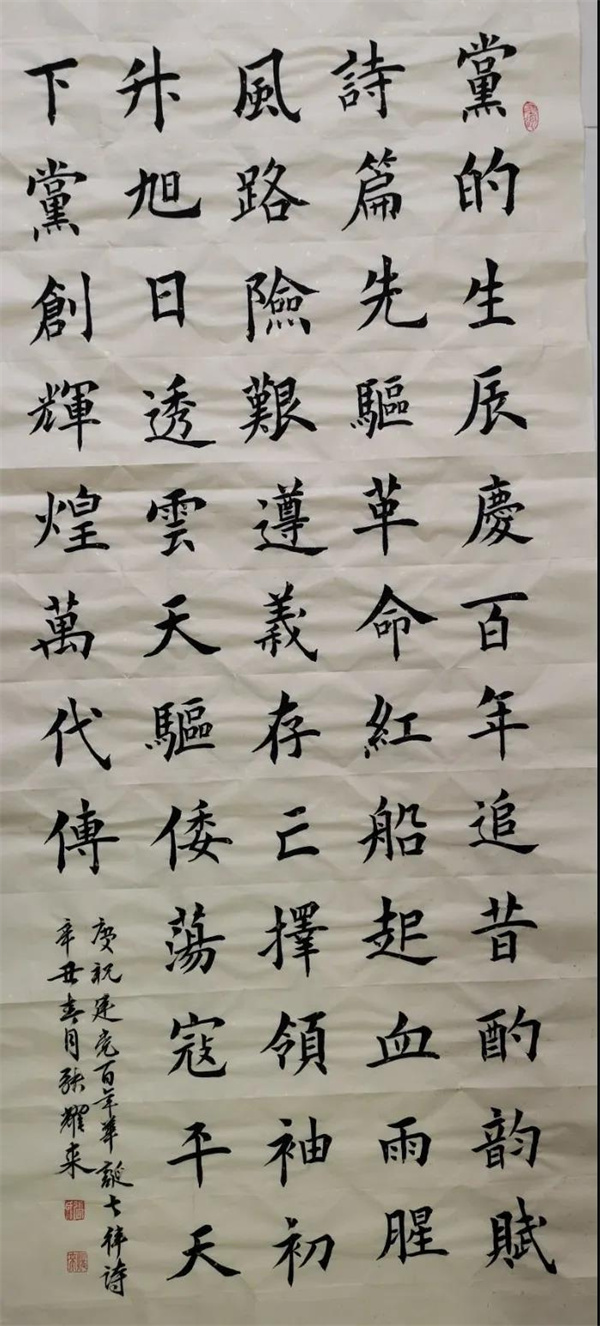 黨的生辰慶百年追昔酌韵賦
詩篇先驅革命紅船起血雨腥
風路險艱遵義存亡擇領袖初
升旭日透雲天驅倭蕩寇平天
下黨創輝煌萬代傳
慶祝建党百年華誕七律詩
辛丑春月張耀来